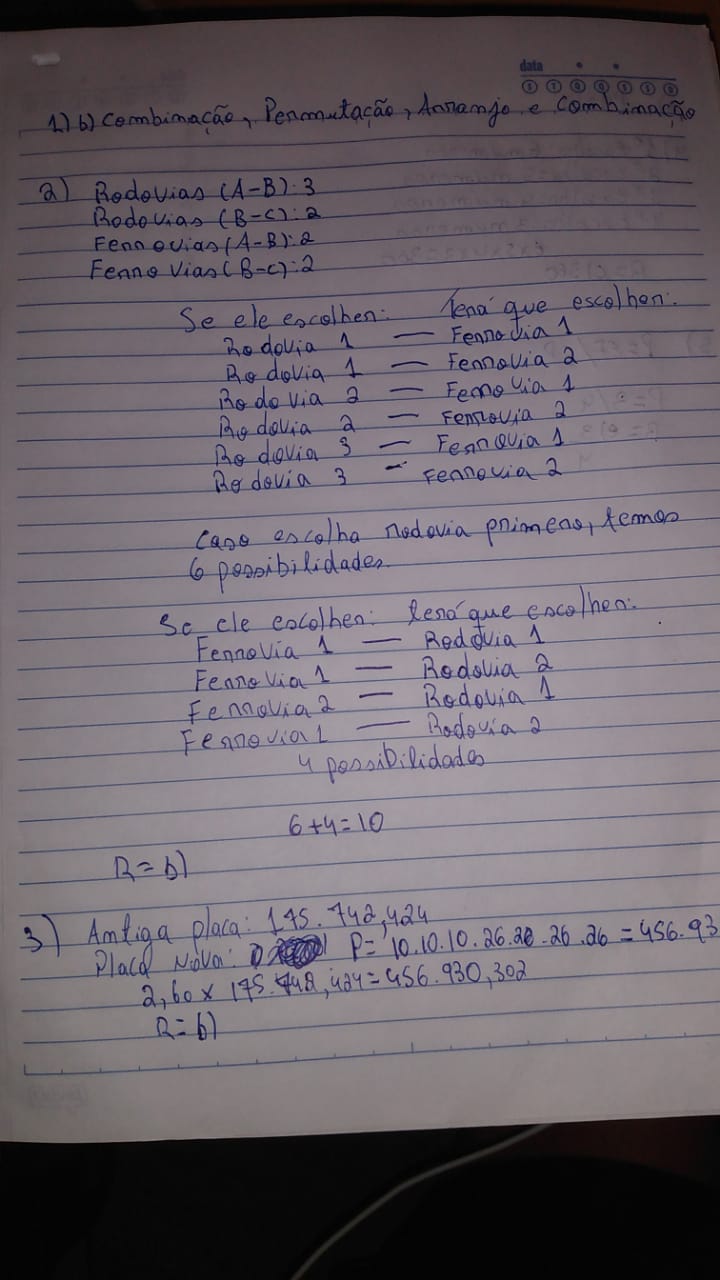 data
1) b) Combinação, Permutação, Arranjo e Combinação
2) Rodovias (A-B): 3
Rodovias (B-C): 2
Ferrovias (A-B): 2
Ferrovias (B-C): 2
Se ele escolher: Terá que escolher:
Rodovia 1 — Ferrovia 1
Rodovia 1 — Ferrovia 2
Rodovia 2 — Ferrovia 1
Rodovia 2 — Ferrovia 2
Rodovia 3 — Ferrovia 1
Rodovia 3 — Ferrovia 2
Caso escolha rodovia primero, temos
6 possibilidades.
Se ele escolher: terá que escolher:
Ferrovia 1 — Rodovia 1
Ferrovia 1 — Rodovia 2
Ferrovia 2 — Rodovia 1
Ferrovia 1 — Rodovia 2
4 possibilidades
6+4=10
R= b)
3) Antiga placa: 175.742,424
Placa Nova: P= 10.10.10.26.26.26.26 = 456.93
2,60 x 175.742,424=456.930,302
R= b)